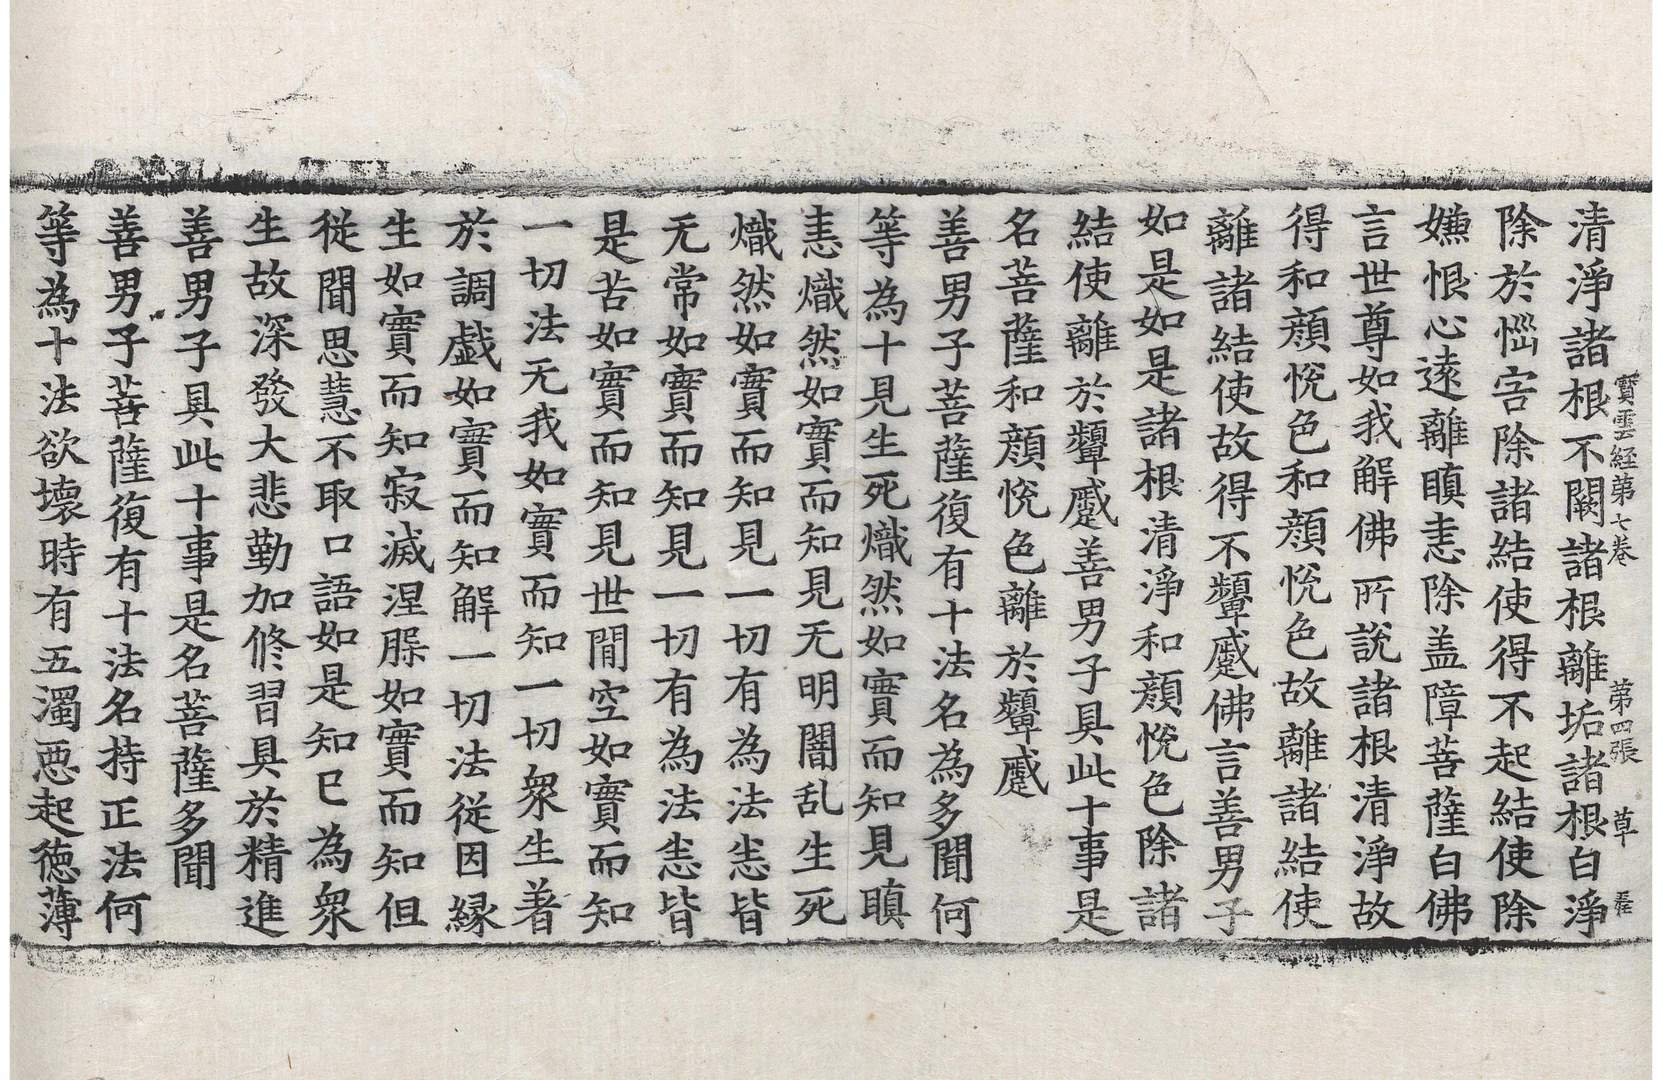 寶雲経第七卷 第四張 草
清淨諸根不闕諸根離垢諸根白淨
除於惱害除諸結使得不起結使除
嫌恨心遠離瞋恚除盖障菩薩白佛
言世尊如我解佛所說諸根清淨故
得和顔悅色和顔悅色故離諸結使
離諸結使故得不顰蹙佛言善男子
如是如是諸根清淨和顔悅色除諸
結使離於顰蹙善男子具此十事是
名菩薩和顔悅色離於顰蹙
善男子菩薩復有十法名為多聞何
等為十見生死熾然如實而知見瞋
恚熾然如實而知見无明闇乱生死
熾然如實而知見一切有為法恙皆
无常如實而知見一切有為法恙皆
是苦如實而知見世間空如實而知
一切法无我如實而知一切衆生著
於調戲如實而知解一切法從因縁
生如實而知寂滅涅槃如實而知但
從聞思慧不取口語如是知已為衆
生故深發大悲勤加修習具於精進
善男子具此十事是名菩薩多聞
善男子菩薩復有十法名持正法何
等為十法欲壞時有五濁惡起德薄